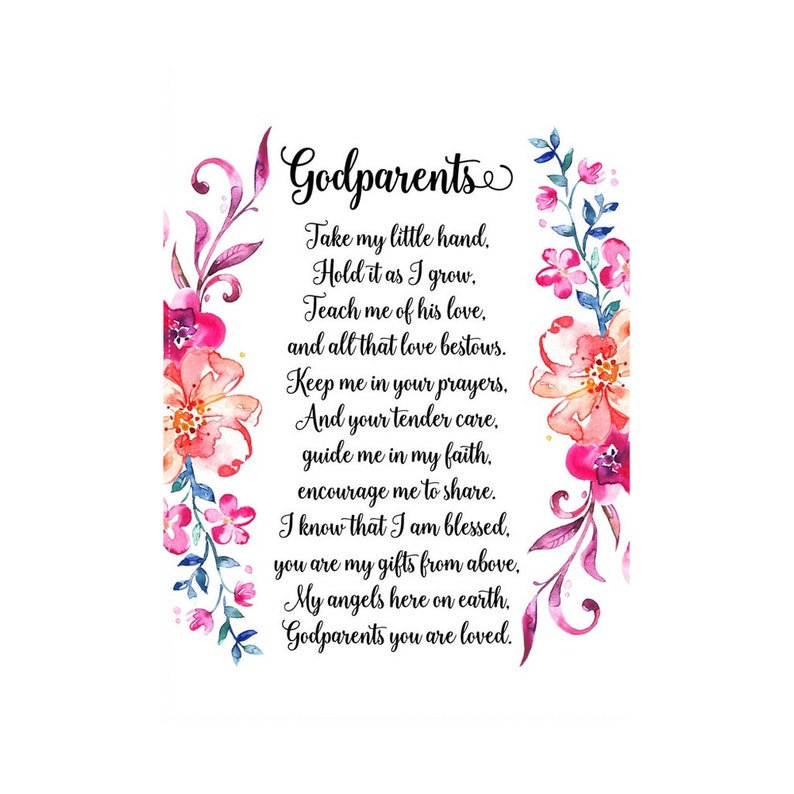 Godparents
Take my little hand,
Hold it as I grow,
Teach me of his love,
and all that love bestows.
Keep me in your prayers,
And your tender care,
guide me in my faith,
encourage me to share.
I know that I am blessed,
you are my gifts from above,
My angels here on earth,
Godparents you are loved.